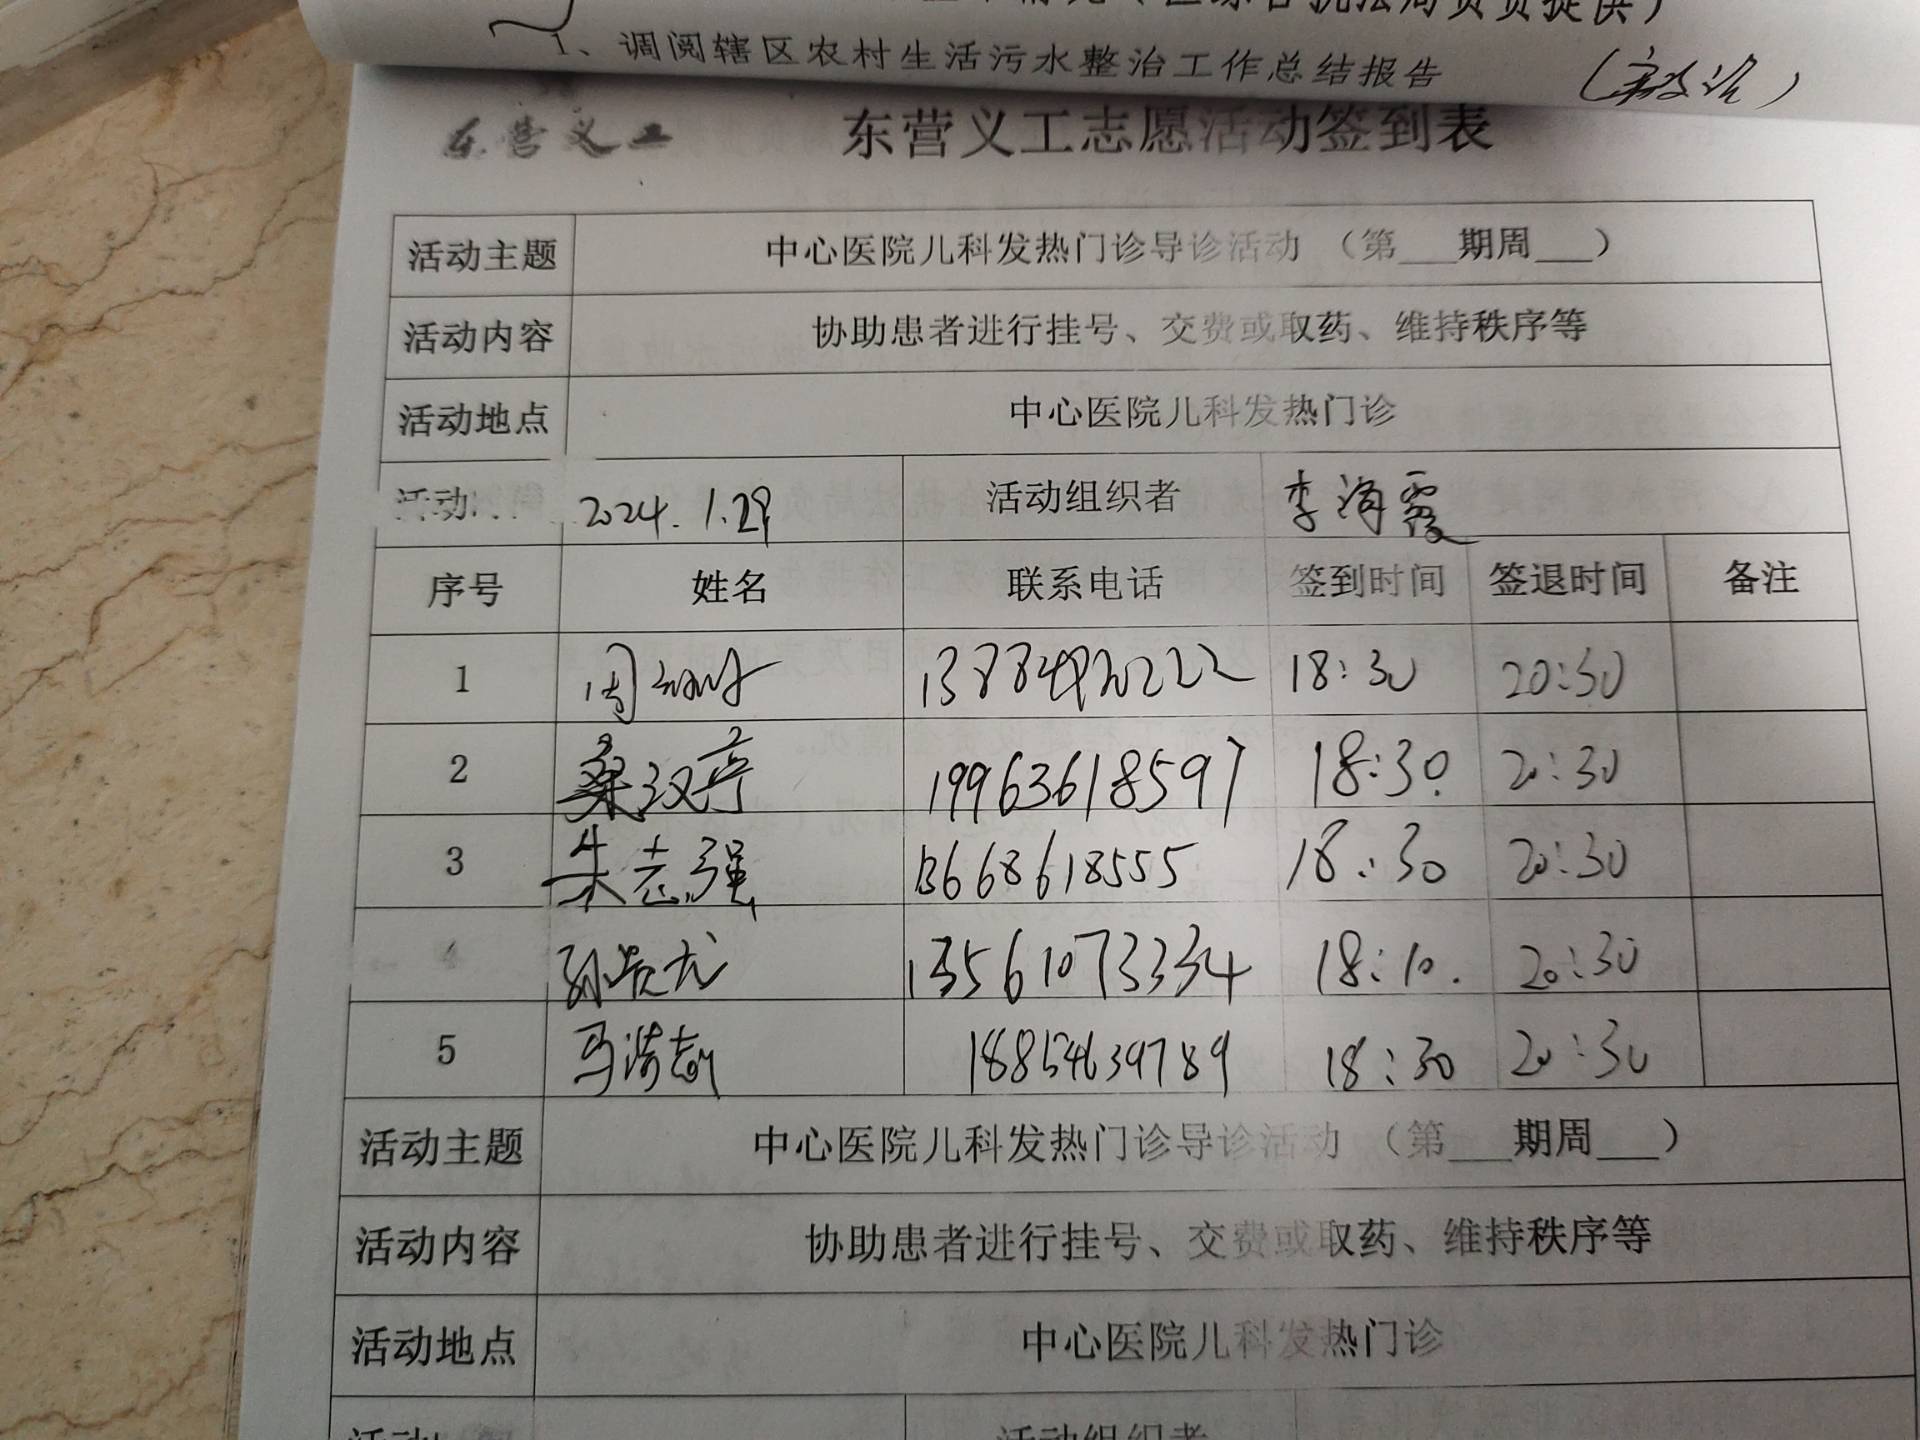 1、调阅辖区农村生活污水整治工作总结报告
东营义工
东营义工志愿活动签到表
活动主题 中心医院儿科发热门诊导诊活动 （第___期周___）
活动内容 协助患者进行挂号、交费或取药、维持秩序等
活动地点 中心医院儿科发热门诊
活动 2024.1.29 活动组织者 李海霞
序号 姓名 联系电话 签到时间 签退时间 备注
1 周 18:30 20:30
2 桑汉亭 19963618597 18:30 20:30
3 朱志强 13668618555 18:30 20:30
4 孙 13561073334 18:10. 20:30
5 马 18854639789 18:30 20:30
活动主题 中心医院儿科发热门诊导诊活动 （第___期周___）
活动内容 协助患者进行挂号、交费或取药、维持秩序等
活动地点 中心医院儿科发热门诊
活动 活动组织者